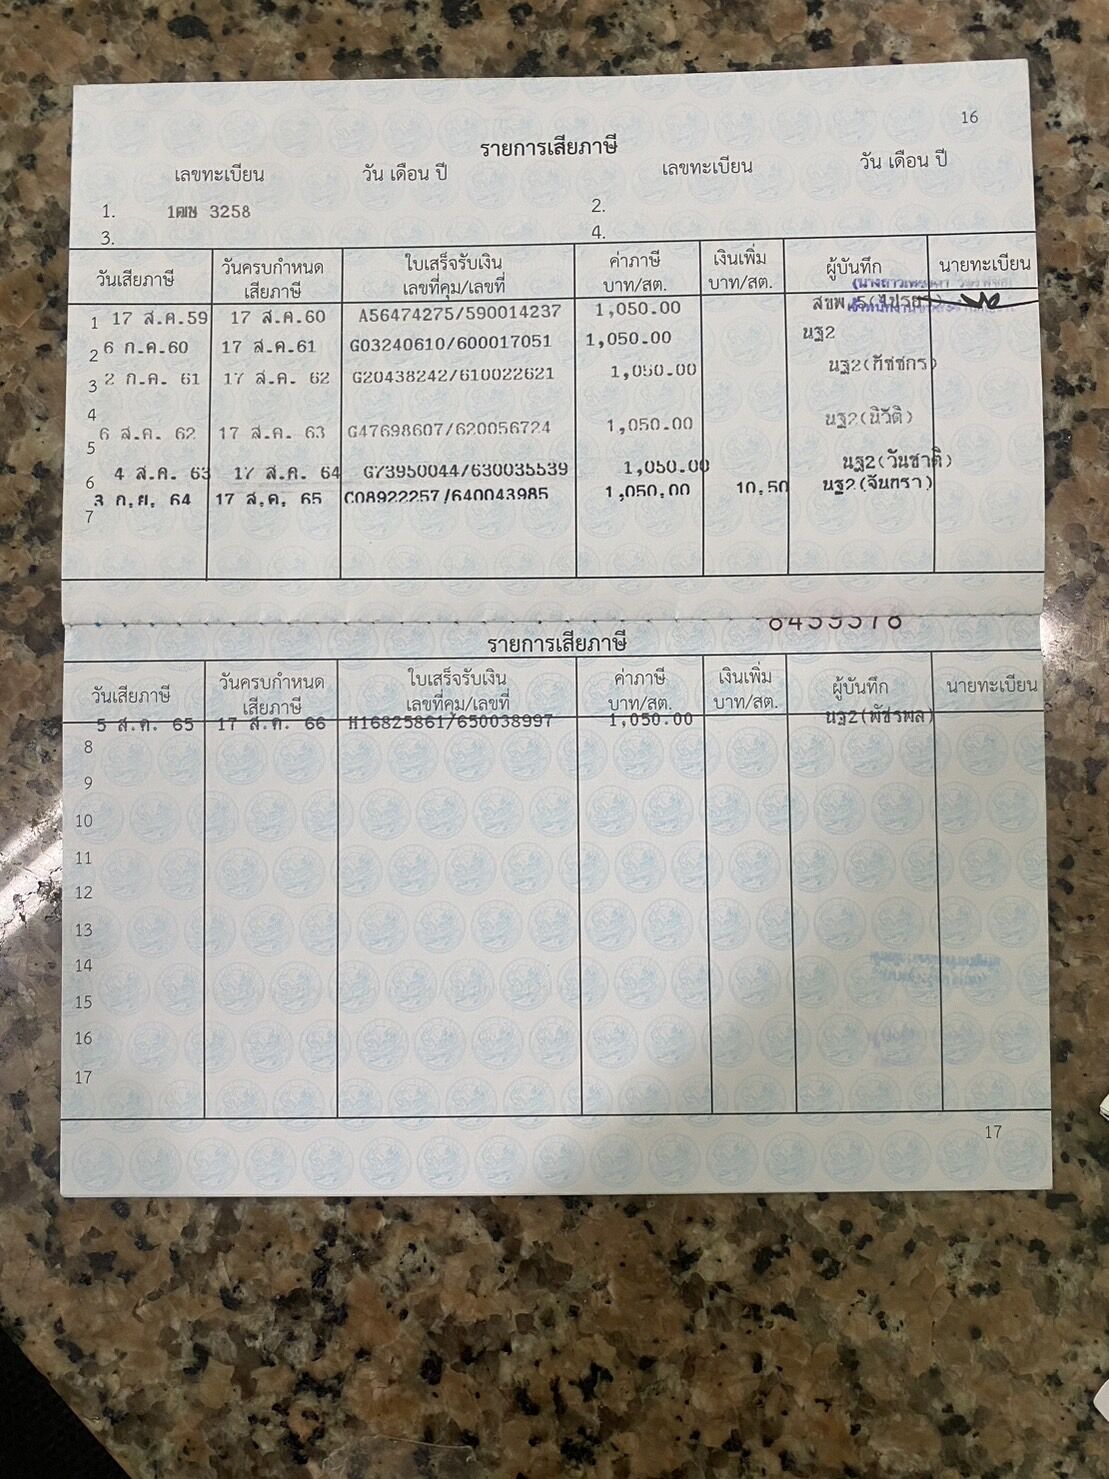 16
รายการเสียภาษี
เลขทะเบียน วัน เดือน ปี เลขทะเบียน วัน เดือน ปี
1. 1ฒษ 3258 2.
3. 4.
วันเสียภาษี วันครบกำหนด ใบเสร็จรับเงิน ค่าภาษี เงินเพิ่ม ผู้บันทึก นายทะเบียน
เสียภาษี เลขที่คุม/เลขที่ บาท/สต. บาท/สต.
1 17 ส.ค.59 17 ส.ค.60 A56474275/590014237 1,050.00 สขพ.5
2 6 ก.ค.60 17 ส.ค.61 G03240610/600017051 1,050.00 นฐ2
3 2 ก.ค. 61 17 ส.ค. 62 G20438242/610022621 1,050.00 นฐ2(กัชชกร)
4
6 ส.ค. 62 17 ส.ค. 63 G47698607/620056724 1,050.00 นฐ2(นิวัติ)
5
4 ส.ค. 63 17 ส.ค. 64 G73950044/630035539 1,050.00 นฐ2(วันชาติ)
6
3 ก.ย. 64 17 ส.ค. 65 C08922257/640043985 1,050.00 10.50 นฐ2(จันทรา)
7
8459578
รายการเสียภาษี
วันเสียภาษี วันครบกำหนด ใบเสร็จรับเงิน ค่าภาษี เงินเพิ่ม ผู้บันทึก นายทะเบียน
เสียภาษี เลขที่คุม/เลขที่ บาท/สต. บาท/สต.
5 ส.ค. 65 17 ส.ค. 66 H16825861/650038997 1,050.00 นฐ2(พัชรพล)
8
9
10
11
12
13
14
15
16
17
17